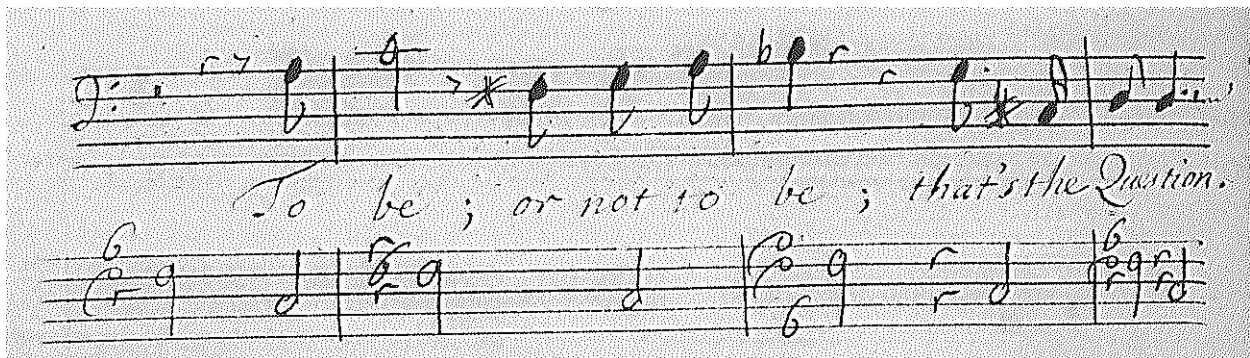 To be; or not to be; that's the Question.